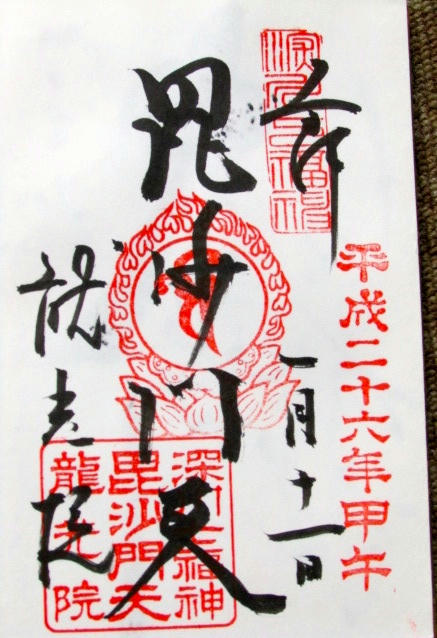 平成二十六年甲午
奉拝
一月十一日
毘沙門天
龍光院
深川七福神
毘沙門天
龍光院